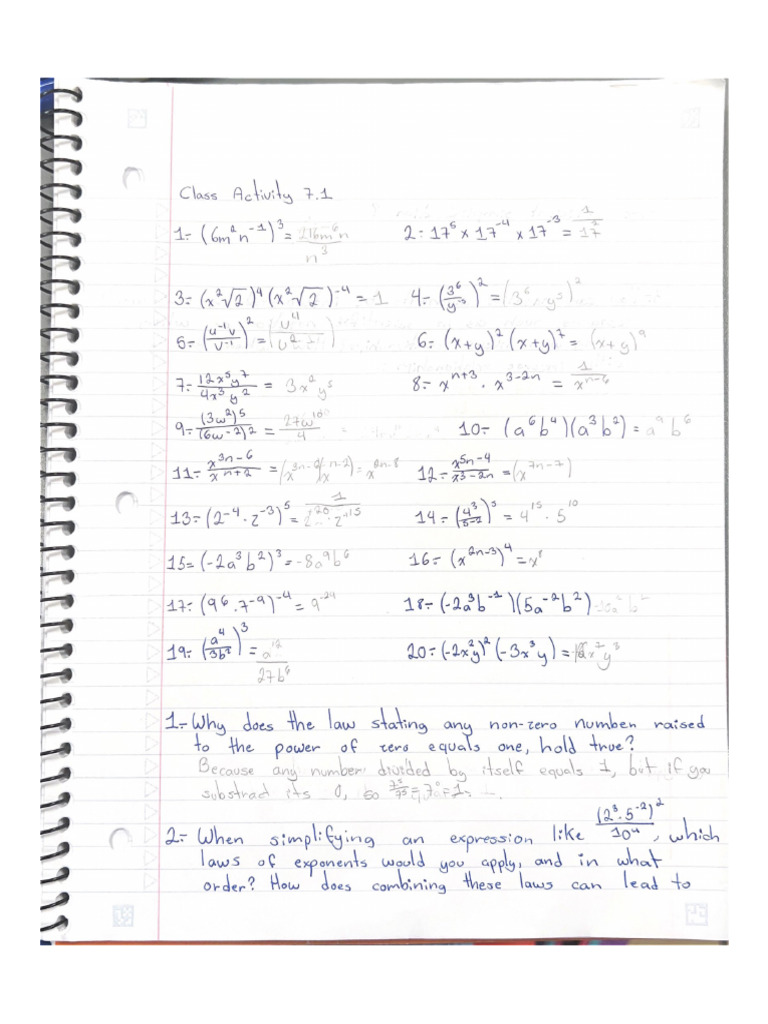 Class Activity 7.1
1:- (6m²n⁻¹)³ = 216m⁶n / n³ 2:- 17⁵ × 17⁻⁴ × 17⁻³ = 1 / 17²
3:- (x²√2)⁴ (x²√2)⁻⁴ = 1 4:- (3⁶/y⁻⁵)² = (3⁶ · y⁵)²
5:- (u⁻¹v/v⁻¹)² = 6:- (x+y)² (x+y)⁷ = (x+y)⁹
7:- 12x⁵y⁷ / 4x³y² = 3x²y⁵ 8:- xⁿ⁺³ · x³⁻²ⁿ = 1 / xⁿ⁻⁶
9:- (3w²)⁵ / (6w⁻²)² = 27w¹⁰ / 4 10:- (a⁶b⁴)(a³b²) = a⁹b⁶
11:- x³ⁿ⁻⁶ / xⁿ⁺² = x²ⁿ⁻⁸ 12:- x⁵ⁿ⁻⁴ / x³⁻²ⁿ = (x⁷ⁿ⁻⁷)
13:- (2⁻⁴ · z⁻³)⁵ = 1 / 2²⁰ · z¹⁵ 14:- (4³/5⁻²)⁵ = 4¹⁵ · 5¹⁰
15= (-2a³b²)³ = -8a⁹b⁶ 16:- (x²ⁿ⁻³)⁴ = x⁸
17:- (96 · 7⁻⁹)⁻⁴ = 9⁻²⁴ 18:- (-2a³b⁻¹)(5a⁻²b²) =
19:- (a⁴/3b²)³ = a¹² / 27b⁶ 20:- (-2x²y)² (-3x³y) =
1:- Why does the law stating any non-zero number raised
to the power of zero equals one, hold true?
Because any number divided by itself equals 1, but if you
substract its 0, so = 7⁰ = 1.
2:- When simplifying an expression like (2³·5⁻²)² / 10⁴, which
laws of exponents would you apply, and in what
order? How does combining these laws can lead to